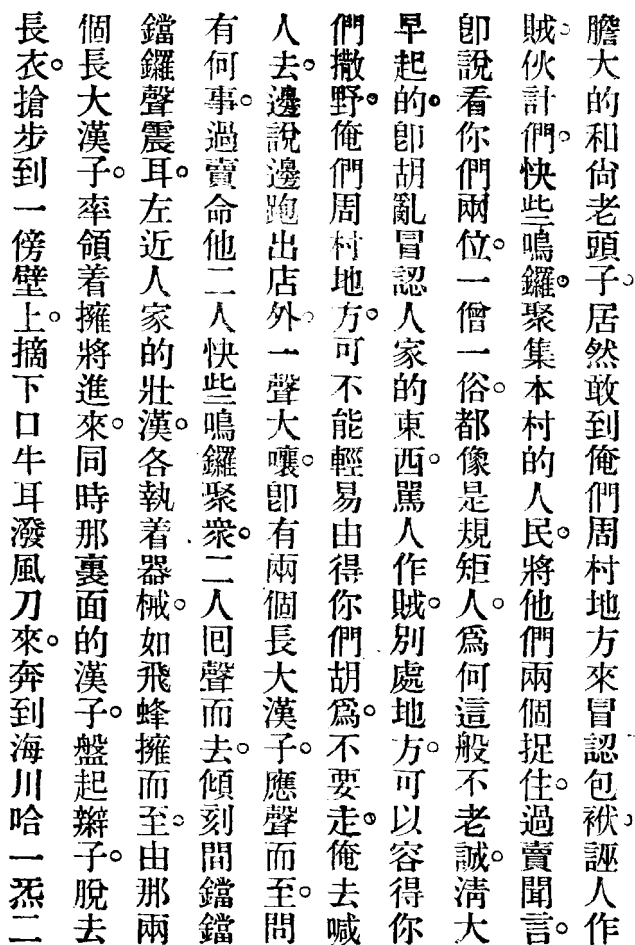 膽大的和尙老頭子。居然敢到俺們周村地方來冒認包袱。誣人作
賊。伙計們。快些鳴鑼。聚集本村的人民。將他們兩個捉住。過賣聞言。
卽說看你們兩位。一僧一俗。都像是規矩人。爲何這般不老誠。淸大
早起的。卽胡亂冒認人家的東西。罵人作賊。別處地方。可以容得你
們撒野。俺們周村地方。可不能輕易由得你們胡爲。不要走。俺去喊
人去。邊說邊跑出店外。一聲大嚷。卽有兩個長大漢子。應聲而至。問
有何事。過賣命他二人快些鳴鑼聚衆。二人回聲而去。傾刻間鐺鐺
鐺鑼聲震耳。左近人家的壯漢。各執着器械。如飛蜂擁而至。由那兩
個長大漢子。率領着擁將進來。同時那裏面的漢子。盤起辮子。脫去
長衣。搶步到一傍壁上。摘下口牛耳潑風刀來。奔到海川哈一炁二